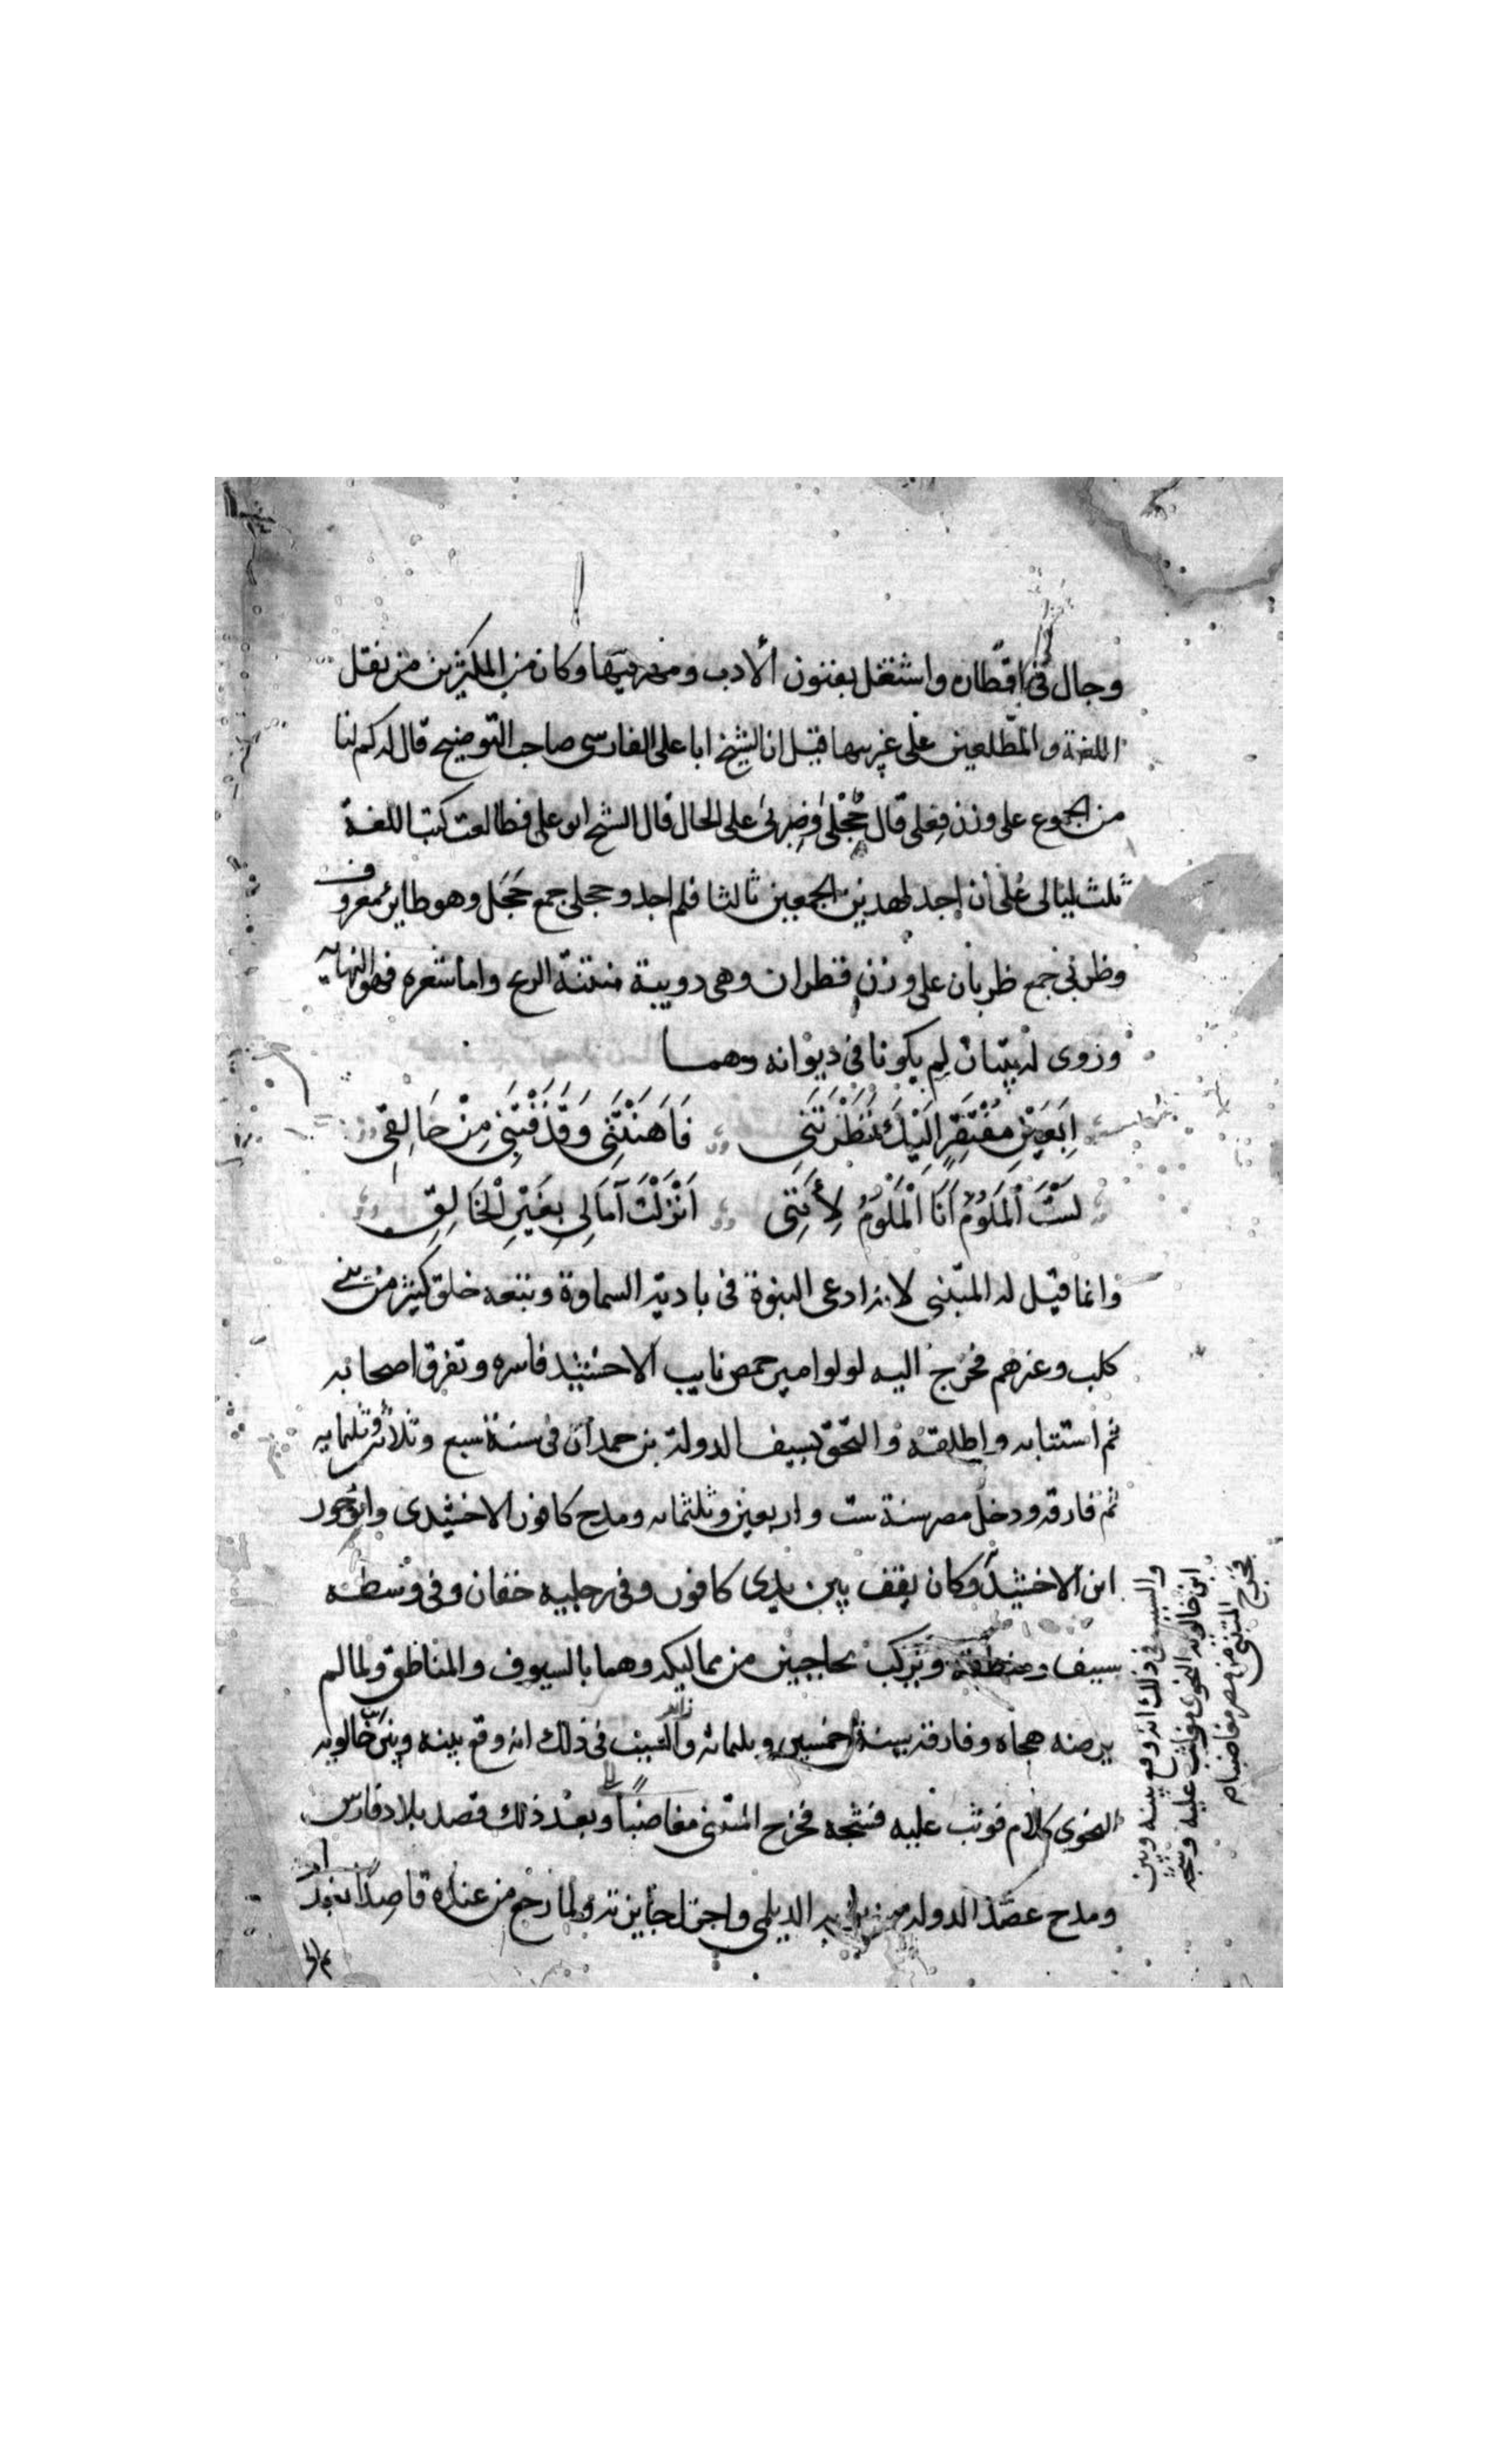 وجال فى اقطاره واشتغل بفنون الادب ومهر فيها وكان من المكثرين من نقل
اللغة والمطلعين على غريبها قيل ان الشيخ ابا على الفارسى صاحب التوضيح قال له كم لنا
من الجموع على وزن فعلى قال حجلى وظربى على الحال قال الشيخ ابو على فطالعت كتب اللغة
ثلث ليالى على أن اجد لهذين الجمعين ثالثا فلم اجد وحجلى جمع حَجَل وهو طاير معروف
وظربى جمع ظربان على وزن قطران وهى دويبة منتنة الريح واما شعره فهو النهايه
وروى له بيتان لم يكونا فى ديوانه وهما
اَبِعَيْنِ مُفْتَقِرٍ اِلَيْكَ نَظَرْتَنِى فَاَهَنْتَنِى وَقَذَفْتَنِى مِنْ حَالِقِى
لَسْتَ اَلْمَلُومُ اَنَا اَلْمَلُومُ لِأَنَّنِى اَنْزَلْتُ آمَالِى بِغَيْرِ اْلخَالِقِ
وانما قيل له المتنبى لانه ادعى النبوة فى بادية السماوة وتبعه خلق كثير من بنى
كلب وغيرهم فخرج اليه لولو امير حمص نايب الاخشيد فاسره وتفرق اصحابه
ثم استتابه واطلقه والتحق بسيف الدولة بن حمدان فى سنة سبع وثلاثين وثلثمايه
ثم فارقه ودخل مصر سنة ست واربعين وثلثمايه ومدح كافور الاخشيدى وانوجور
ابن الاخشيد وكان يقف بين يدى كافور وفى رجليه خفان وفى وسطه
سيف ومنطقة ويركب بحاجبين من مماليكه وهما بالسيوف والمناطق ولما لم
يرضه هجاه وفارقه سنة خمسين وثلثمائه والسبب فى ذلك انه وقع بينه وبين خالويه
النحوى كلام فوثب عليه فشجه فخرج المتنبى مغاضبًا وبعد ذلك قصد بلاد فارس
ومدح عضد الدوله بن بويه الديلمى واجزل جايزته ولما رجع من عنده قاصدًا بغداد
والسبب فى ذلك انه وقع بينه وبين
ابن خالويه النحوى فوثب عليه وشجه
فخرج المتنبى من مصر مغاضبا